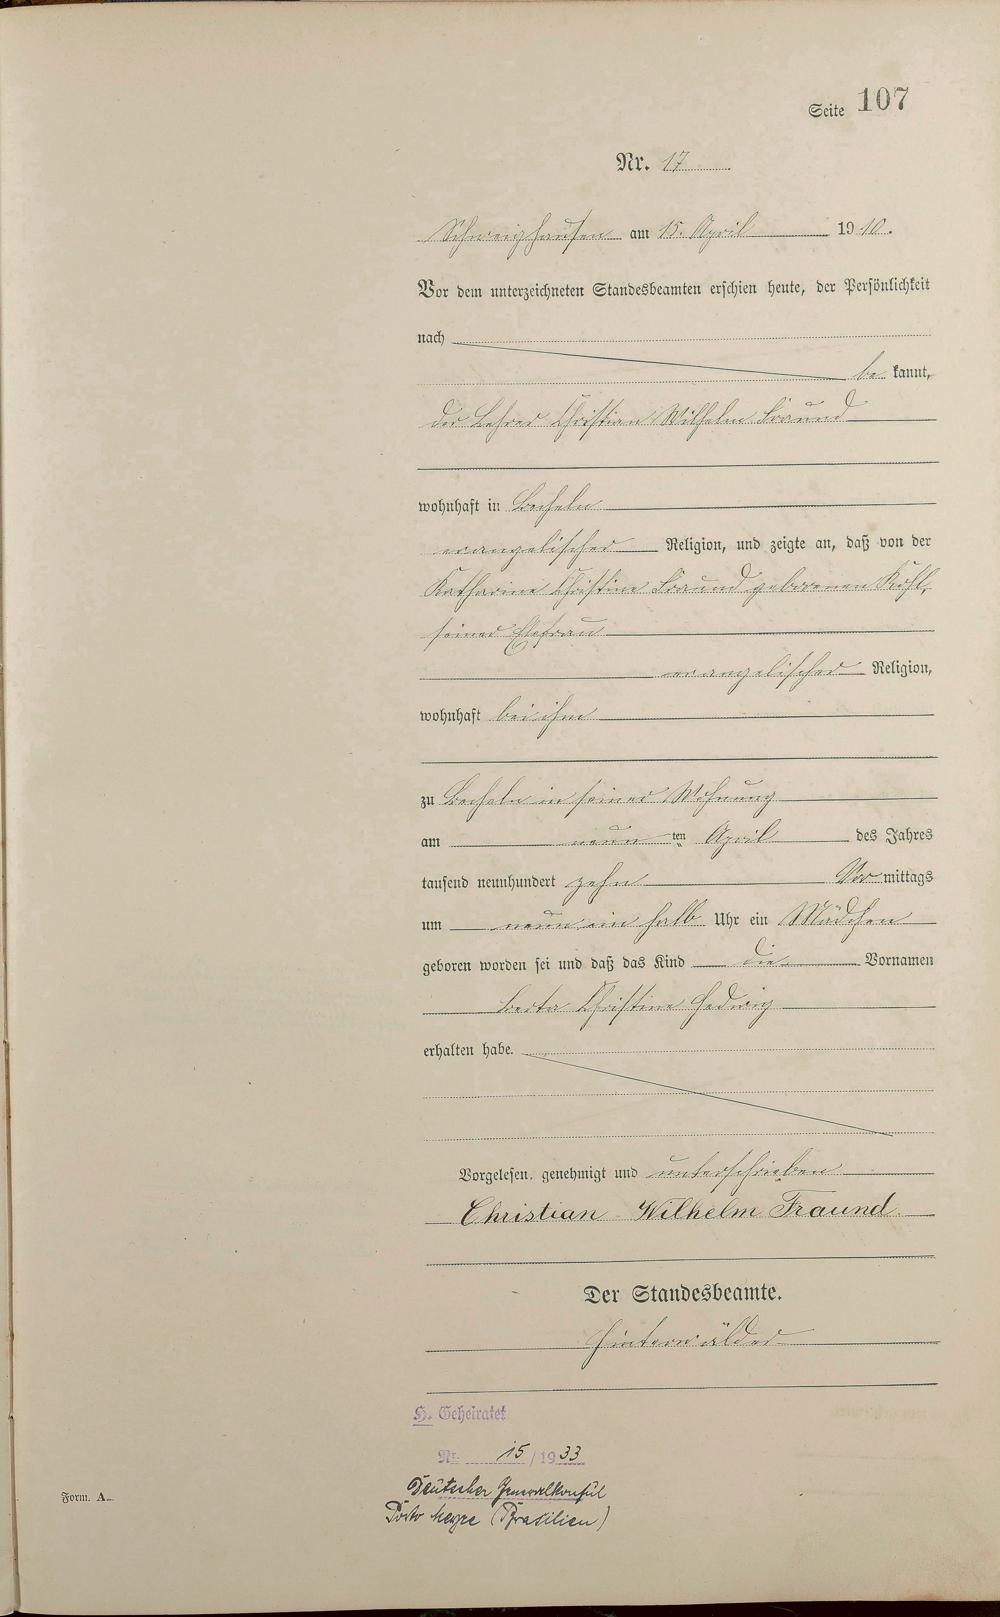 Seite 107
Nr. 17
Schweighausen am 15. April 1910.
Vor dem unterzeichneten Standesbeamten erschien heute, der Persönlichkeit
nach
be kannt,
der Lehrer Christian Wilhelm Fraund
wohnhaft in Becheln
evangelischer Religion, und zeigte an, daß von der
Katharine Christine Fraund geborenen Kohl,
seiner Ehefrau
evangelischer Religion,
wohnhaft bei ihm
zu Becheln in seiner Wohnung
am neun ten April des Jahres
tausend neunhundert zehn Vor mittags
um neun ein halb Uhr ein Mädchen
geboren worden sei und daß das Kind die Vornamen
Berta Christine Hedwig
erhalten habe.
Vorgelesen, genehmigt und unterschrieben
Christian Wilhelm Fraund
Der Standesbeamte.
Hinterwälder
H. Geheiratet
Nr. 15/1933
Deutscher Generalkonsul
Porto Alegre (Brasilien)
Form. A.